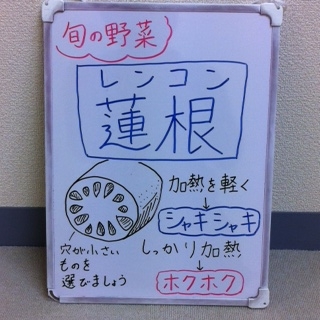 旬の野菜
レンコン
蓮根
加熱を軽く
↓
シャキシャキ
しっかり加熱
↓
ホクホク
穴が小さい
ものを
選びましょう